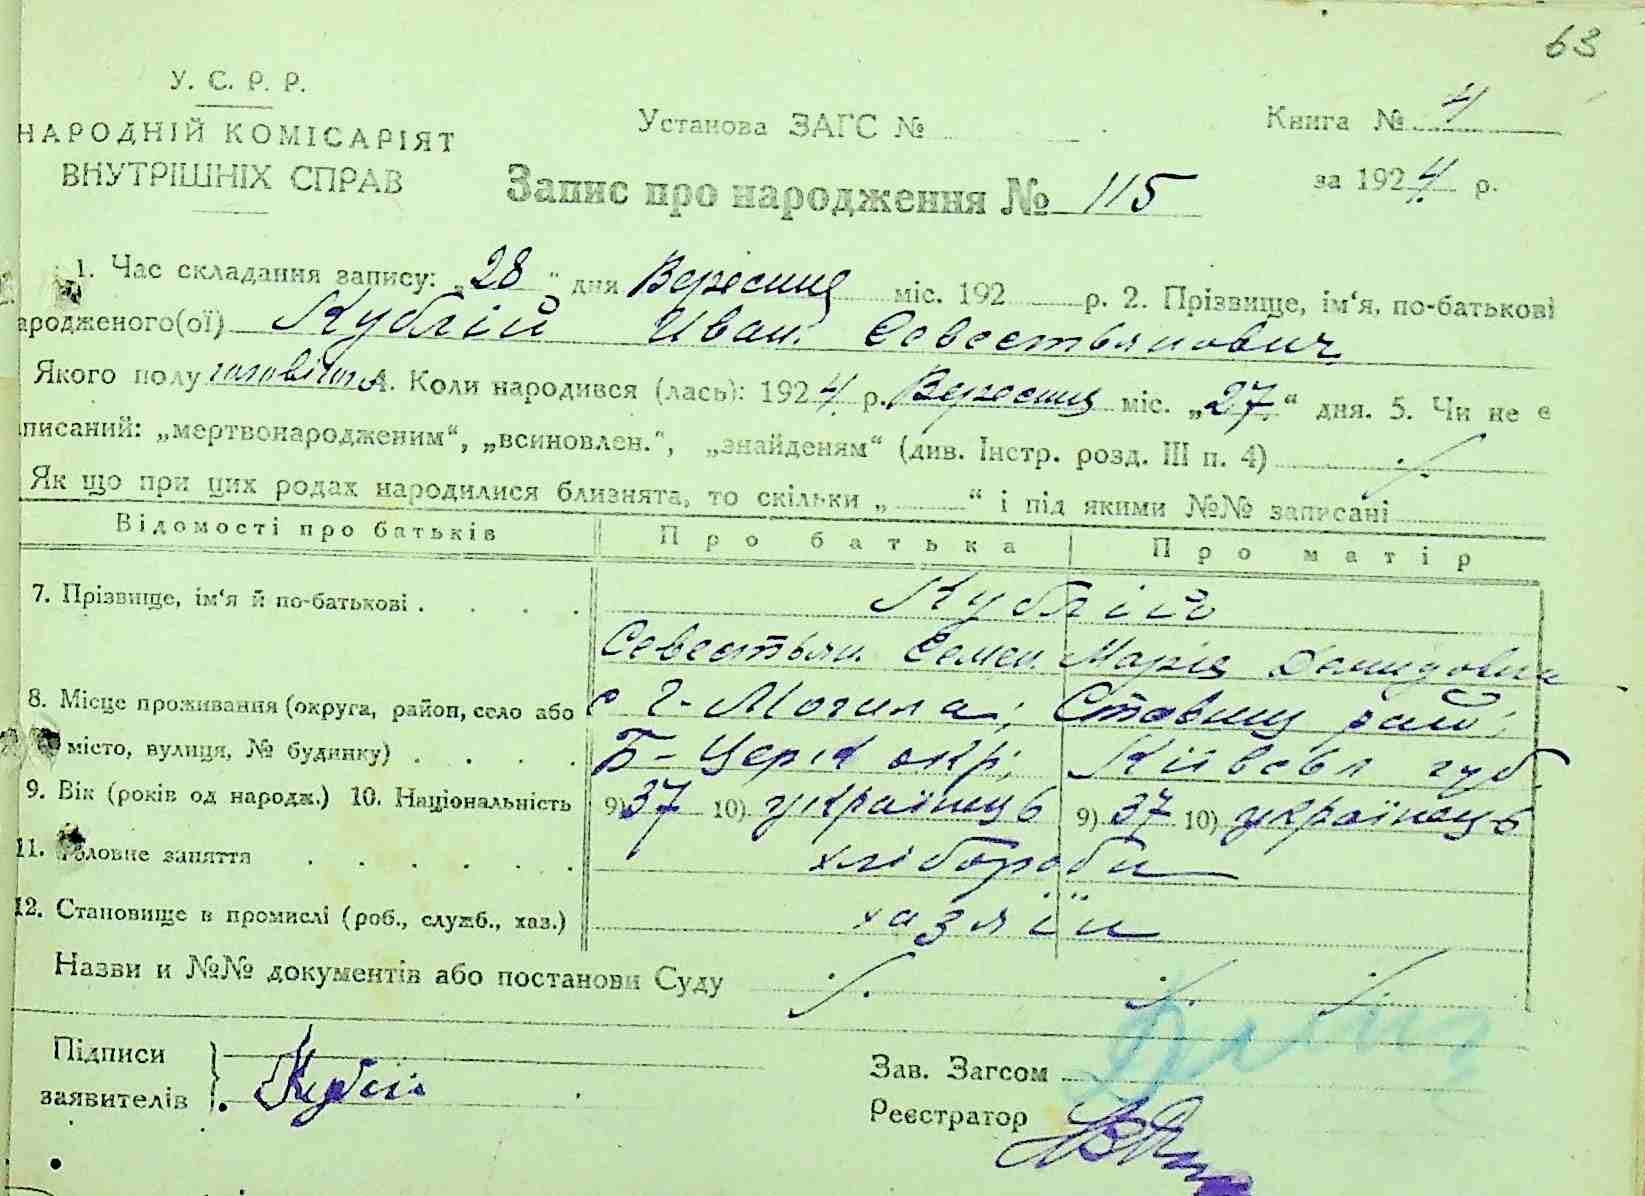 63
У. С. Р. Р.
НАРОДНІЙ КОМІСАРІЯТ
ВНУТРІШНІХ СПРАВ
Установа ЗАГС №
Книга № 4
за 1924 р.
Запис про народження № 115
1. Час складання запису: „28“ дня Вересния міс. 192 р. 2. Прізвище, ім‘я, по-батькові
ародженого(ої) Кублій Иван Севестьянович
Якого полу чоловічого 4. Коли народився (лась): 1924 р. Вересния міс. „27“ дня. 5. Чи не є
писаний: „мертвонародженим“, „всиновлен.“, „знайденям“ (див. Інстр. розд. III п. 4)
Як що при цих родах народилися близнята, то скільки „ “ і під якими №№ записані
Відомості про батьків Про батька Про матір
7. Прізвище, ім‘я й по-батькові Кублій
Севестьян Семен Марія Демидовна
8. Місце проживання (округа, район, село або с Г-Могила; Ставищ рай;
місто, вулиця, № будинку) Б-Церк окр; Київськ губ
9. Вік (років од народж.) 10. Національність 9) 37 10) українець 9) 37 10) українець
11. Головне заняття хлібороби
12. Становище в промислі (роб., служб., хаз.) хазяїн
Назви и №№ документів або постанови Суду
Підписи
заявителів Кублій
Зав. Загсом
Реєстратор